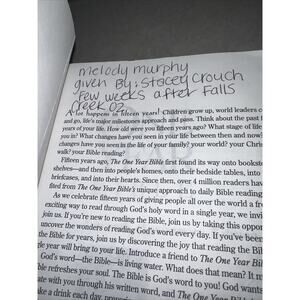 melody murphy
given By: Stacey Crouch
Few weeks after Falls
Creek 02
A lot happens in fifteen years! Children grow up, world leaders c
and go, life's major milestones approach and pass. Think about the past f
years of your life. How old were you fifteen years ago? What stage of life
you in? What changes have you seen in your life between then and now?
changes have you seen in the life of your family? your world? your Chris
walk? your Bible reading?
Fifteen years ago, The One Year Bible first found its way onto booksto
shelves—and then into people's homes, onto their bedside tables, into
briefcases, and into their hearts. Since then, over 4 million readers hav
fited from The One Year Bible's unique approach to daily Bible reading
As we celebrate fifteen years of giving people all over the world a fr
exciting way to read through God's holy word in a single year, we invi
join us. If you're new to reading the Bible, join us by taking this oppor
uncover the wonders of reading God's word every day. If you've been
the Bible for years, join us by discovering the joy that reading the Bib
year will bring to your life. Introduce a friend to The One Year Bibl
God's word—the Bible—is living water. What does that mean? It m
ble refreshes your soul. The Bible is God's word to you! God wants
ate with you through his written word, and The One Year Bib
ke a drink each day